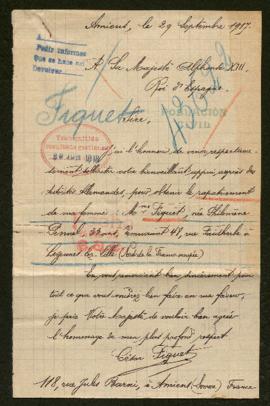 Amiens, le 29 Septembre 1917.
A
Pedir informes
que se hace en
A Sa Majesté Alphonse XIII,
Roi d'Espagne.
Figuet
Sire,
POBLACIÓN
CIVIL
J'ai l'honneur de venir respectueusement
solliciter votre bienveillant appui, auprès des
Autorités Allemandes, pour obtenir le rapatriement
de ma femme : Mme Figuet, née Philomène
ans, demeurant 48, rue Faidherbe à
lez-Lille (Nord de la France occupée)
En vous remerciant bien sincèrement pour
tout ce que vous voudrez bien faire en ma faveur,
je prie Votre Majesté de vouloir bien agréer
l'hommage de mon plus profond respect
César Figuet
118, rue Jules Barni, à Amiens (Somme) France